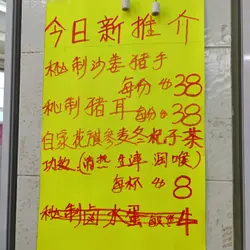 今日新推介
秘制沙姜猪手
每份 38
秘制猪耳 每份 38
自家花旗参麦冬杞子茶
功效(清热生津润喉)
每杯 8
秘制卤水蛋